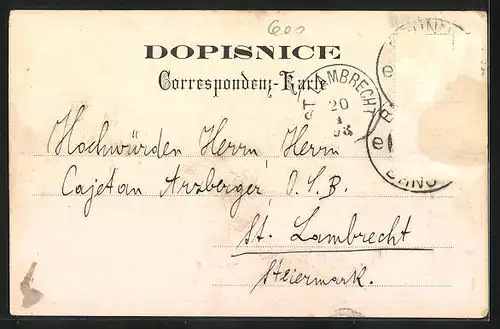 600
DOPISNICE
Correspondenz-Karte
ST. LAMBRECHT
20
1
BRNO
Hochwürden Herrn, Herrn
Cajetan Arzberger, O.S.B.
St. Lambrecht
Steiermark.